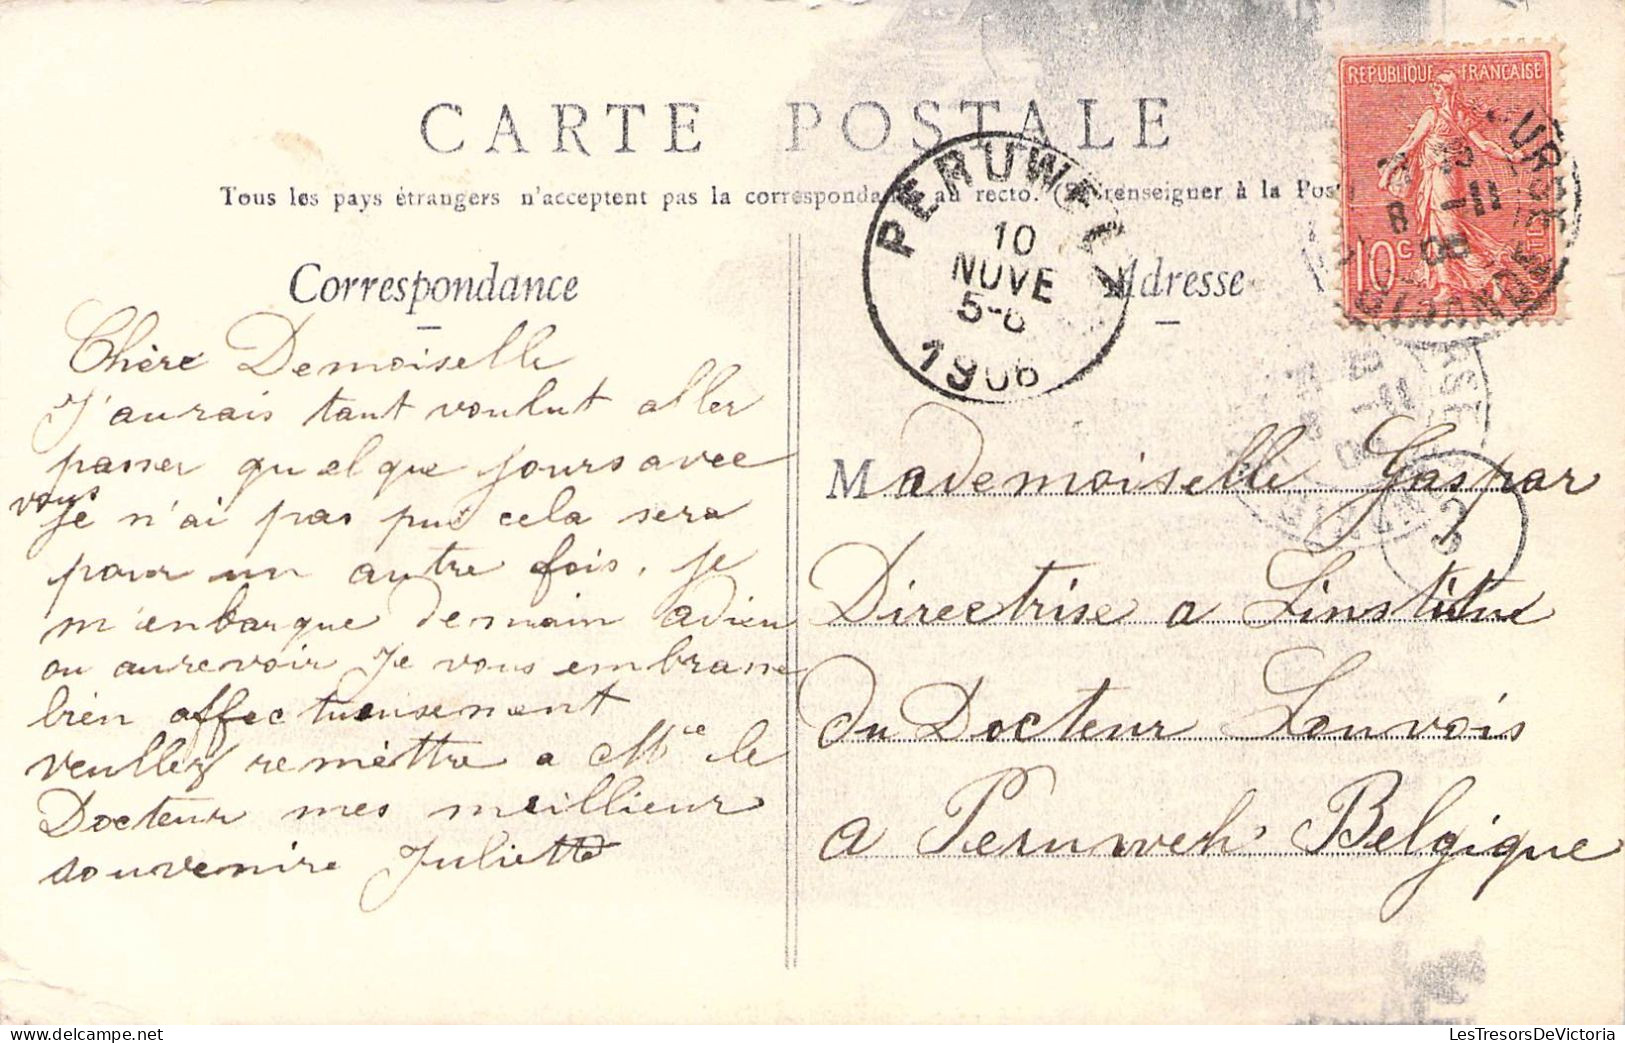 CARTE POSTALE
Tous les pays étrangers n'acceptent pas la correspondance au recto. (Se renseigner à la Poste
Correspondance
Chère Demoiselle
J'aurais tant voulut aller
passer quelque jours avec
vous
je n'ai pas pus cela sera
pour un autre fois, je
m'enbarque demain adieu
ou aurevoir Je vous embrasse
bien affectueusement
veullez remèttre a Mr le
Docteur mes meillieur
souvenire Juliette
PERUWELZ
10
NOVE
5-6
1906
Adresse
REPUBLIQUE FRANÇAISE
10c
8 -11
06
GIRONDE
Mademoiselle Gaspar
Directrise a Linstitue
du Docteur Louvois
a Peruwelz Belgique
LesTresorsDeVictoria